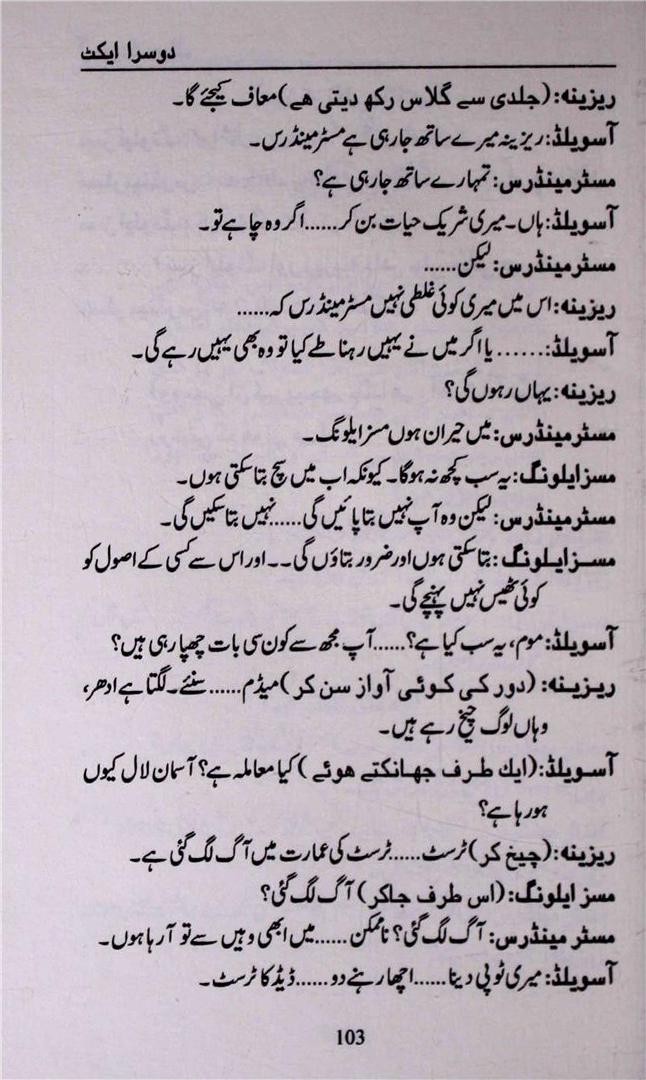 دوسرا ایکٹ
ریزینہ: (جلدی سے گلاس رکھ دیتی ھے) معاف کیجئے گا۔
آسویلڈ: ریزینہ میرے ساتھ جا رہی ہے مسٹر مینڈرس۔
مسٹر مینڈرس: تمہارے ساتھ جا رہی ہے؟
آسویلڈ: ہاں۔ میری شریک حیات بن کر...... اگر وہ چاہے تو۔
مسٹر مینڈرس: لیکن......
ریزینہ: اس میں میری کوئی غلطی نہیں مسٹر مینڈرس کہ......
آسویلڈ: ...... یا اگر میں نے یہیں رہنا طے کیا تو وہ بھی یہیں رہے گی۔
ریزینہ: یہاں رہوں گی؟
مسٹر مینڈرس: میں حیران ہوں مسز ایلونگ۔
مسز ایلونگ: یہ سب کچھ نہ ہوگا۔ کیونکہ اب میں سچ بتا سکتی ہوں۔
مسٹر مینڈرس: لیکن وہ آپ نہیں بتا پائیں گی...... نہیں بتا سکیں گی۔
مسز ایلونگ: بتا سکتی ہوں اور ضرور بتاؤں گی۔۔ اور اس سے کسی کے اصول کو
کوئی ٹھیس نہیں پہنچے گی۔
آسویلڈ: موم، یہ سب کیا ہے؟...... آپ مجھ سے کون سی بات چھپا رہی ہیں؟
ریزینہ: (دور کی کوئی آواز سن کر) میڈم...... سنئے۔ لگتا ہے ادھر،
وہاں لوگ چیخ رہے ہیں۔
آسویلڈ: (ایك طرف جھانکتے ھوئے) کیا معاملہ ہے؟ آسمان لال کیوں
ہو رہا ہے؟
ریزینہ: (چیخ کر) ٹرسٹ...... ٹرسٹ کی عمارت میں آگ لگ گئی ہے۔
مسز ایلونگ: (اس طرف جاکر) آگ لگ گئی؟
مسٹر مینڈرس: آگ لگ گئی؟ ناممکن...... میں ابھی وہیں سے تو آ رہا ہوں۔
آسویلڈ: میری ٹوپی دینا...... اچھا رہنے دو...... ڈیڈ کا ٹرسٹ۔
103